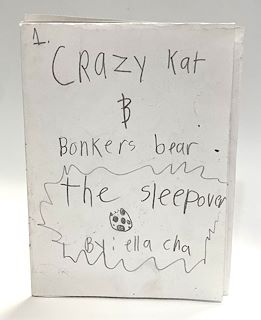 1.
Crazy Kat
&
Bonkers bear.
the sleepover
By: ella cha